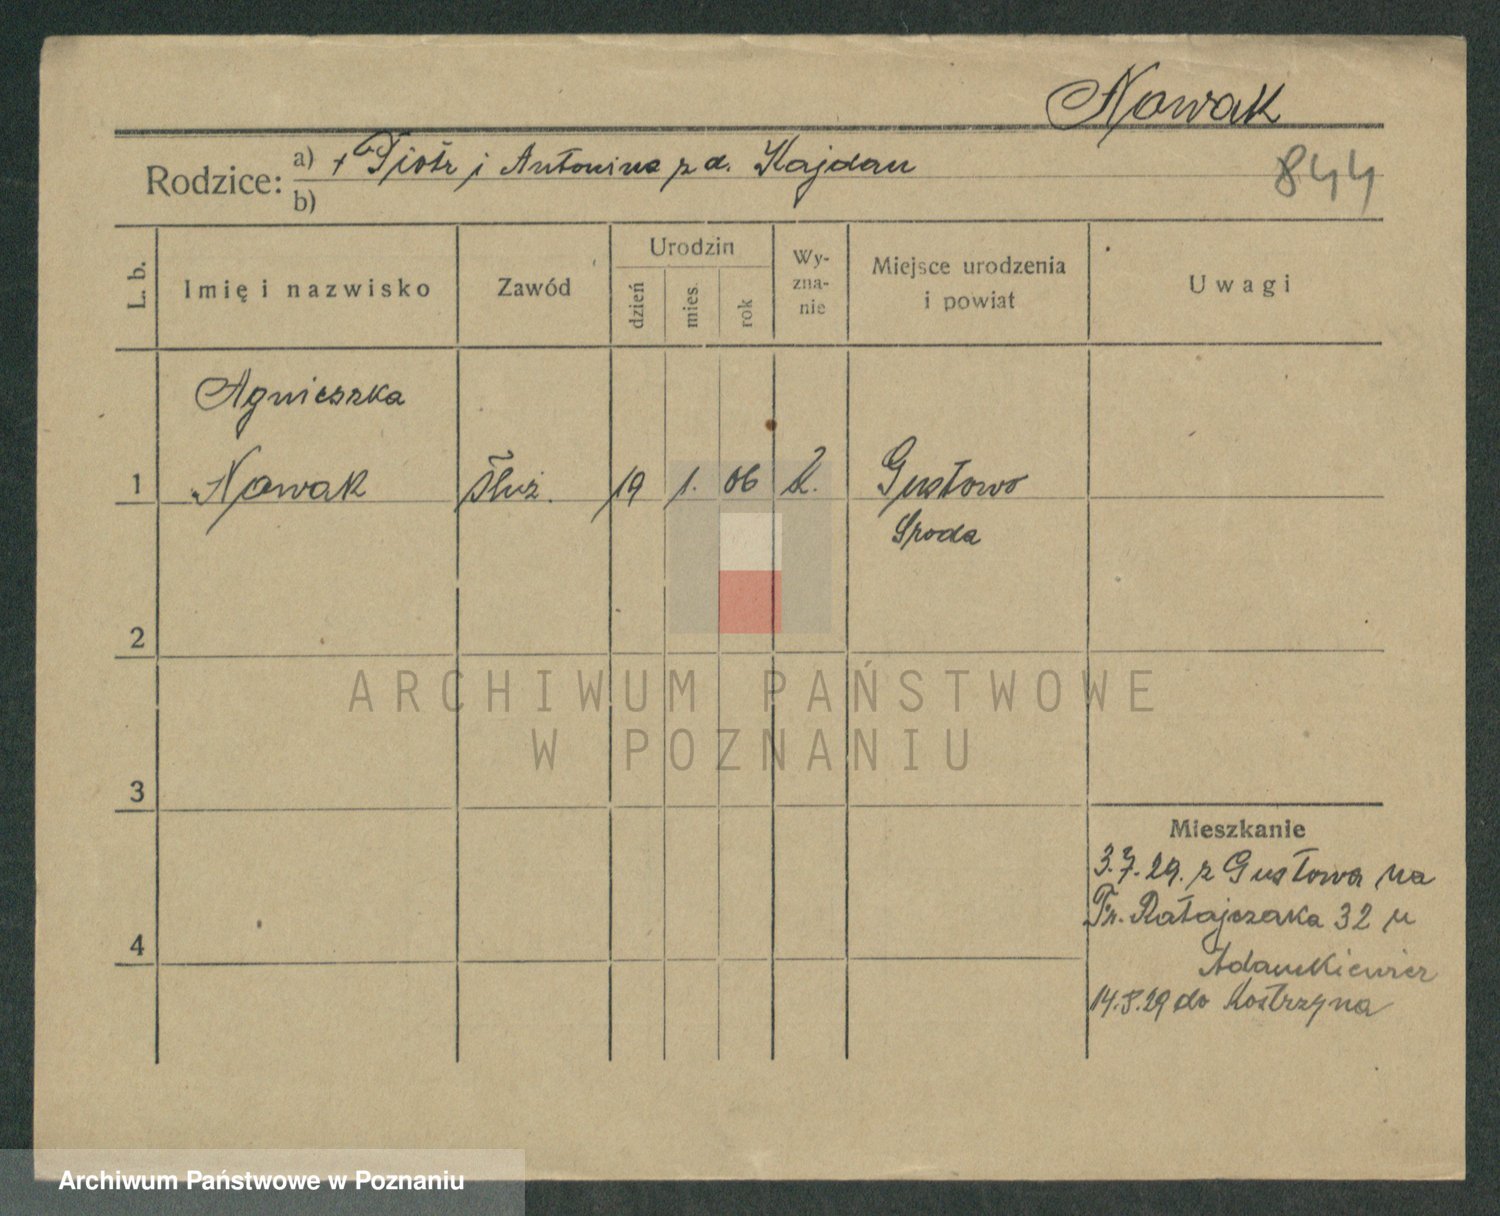 Nowak
Rodzice: a) + Piotr i Antonina z d. Kajdan
844
b)
L. b.
Imię i nazwisko
Zawód
Urodzin
dzień
mies.
rok
Wy-
zna-
nie
Miejsce urodzenia
i powiat
Uwagi
Agnieszka
1 Nowak służ. 19 1. 06 k. Gustowo
Sroda
2
ARCHIWUM PAŃSTWOWE
W POZNANIU
3
Mieszkanie
3.7.29. z Gustowa na
Fr. Ratajczaka 32 u
Adamkiewicz
4
14.8.29 do Kostrzyna
Archiwum Państwowe w Poznaniu